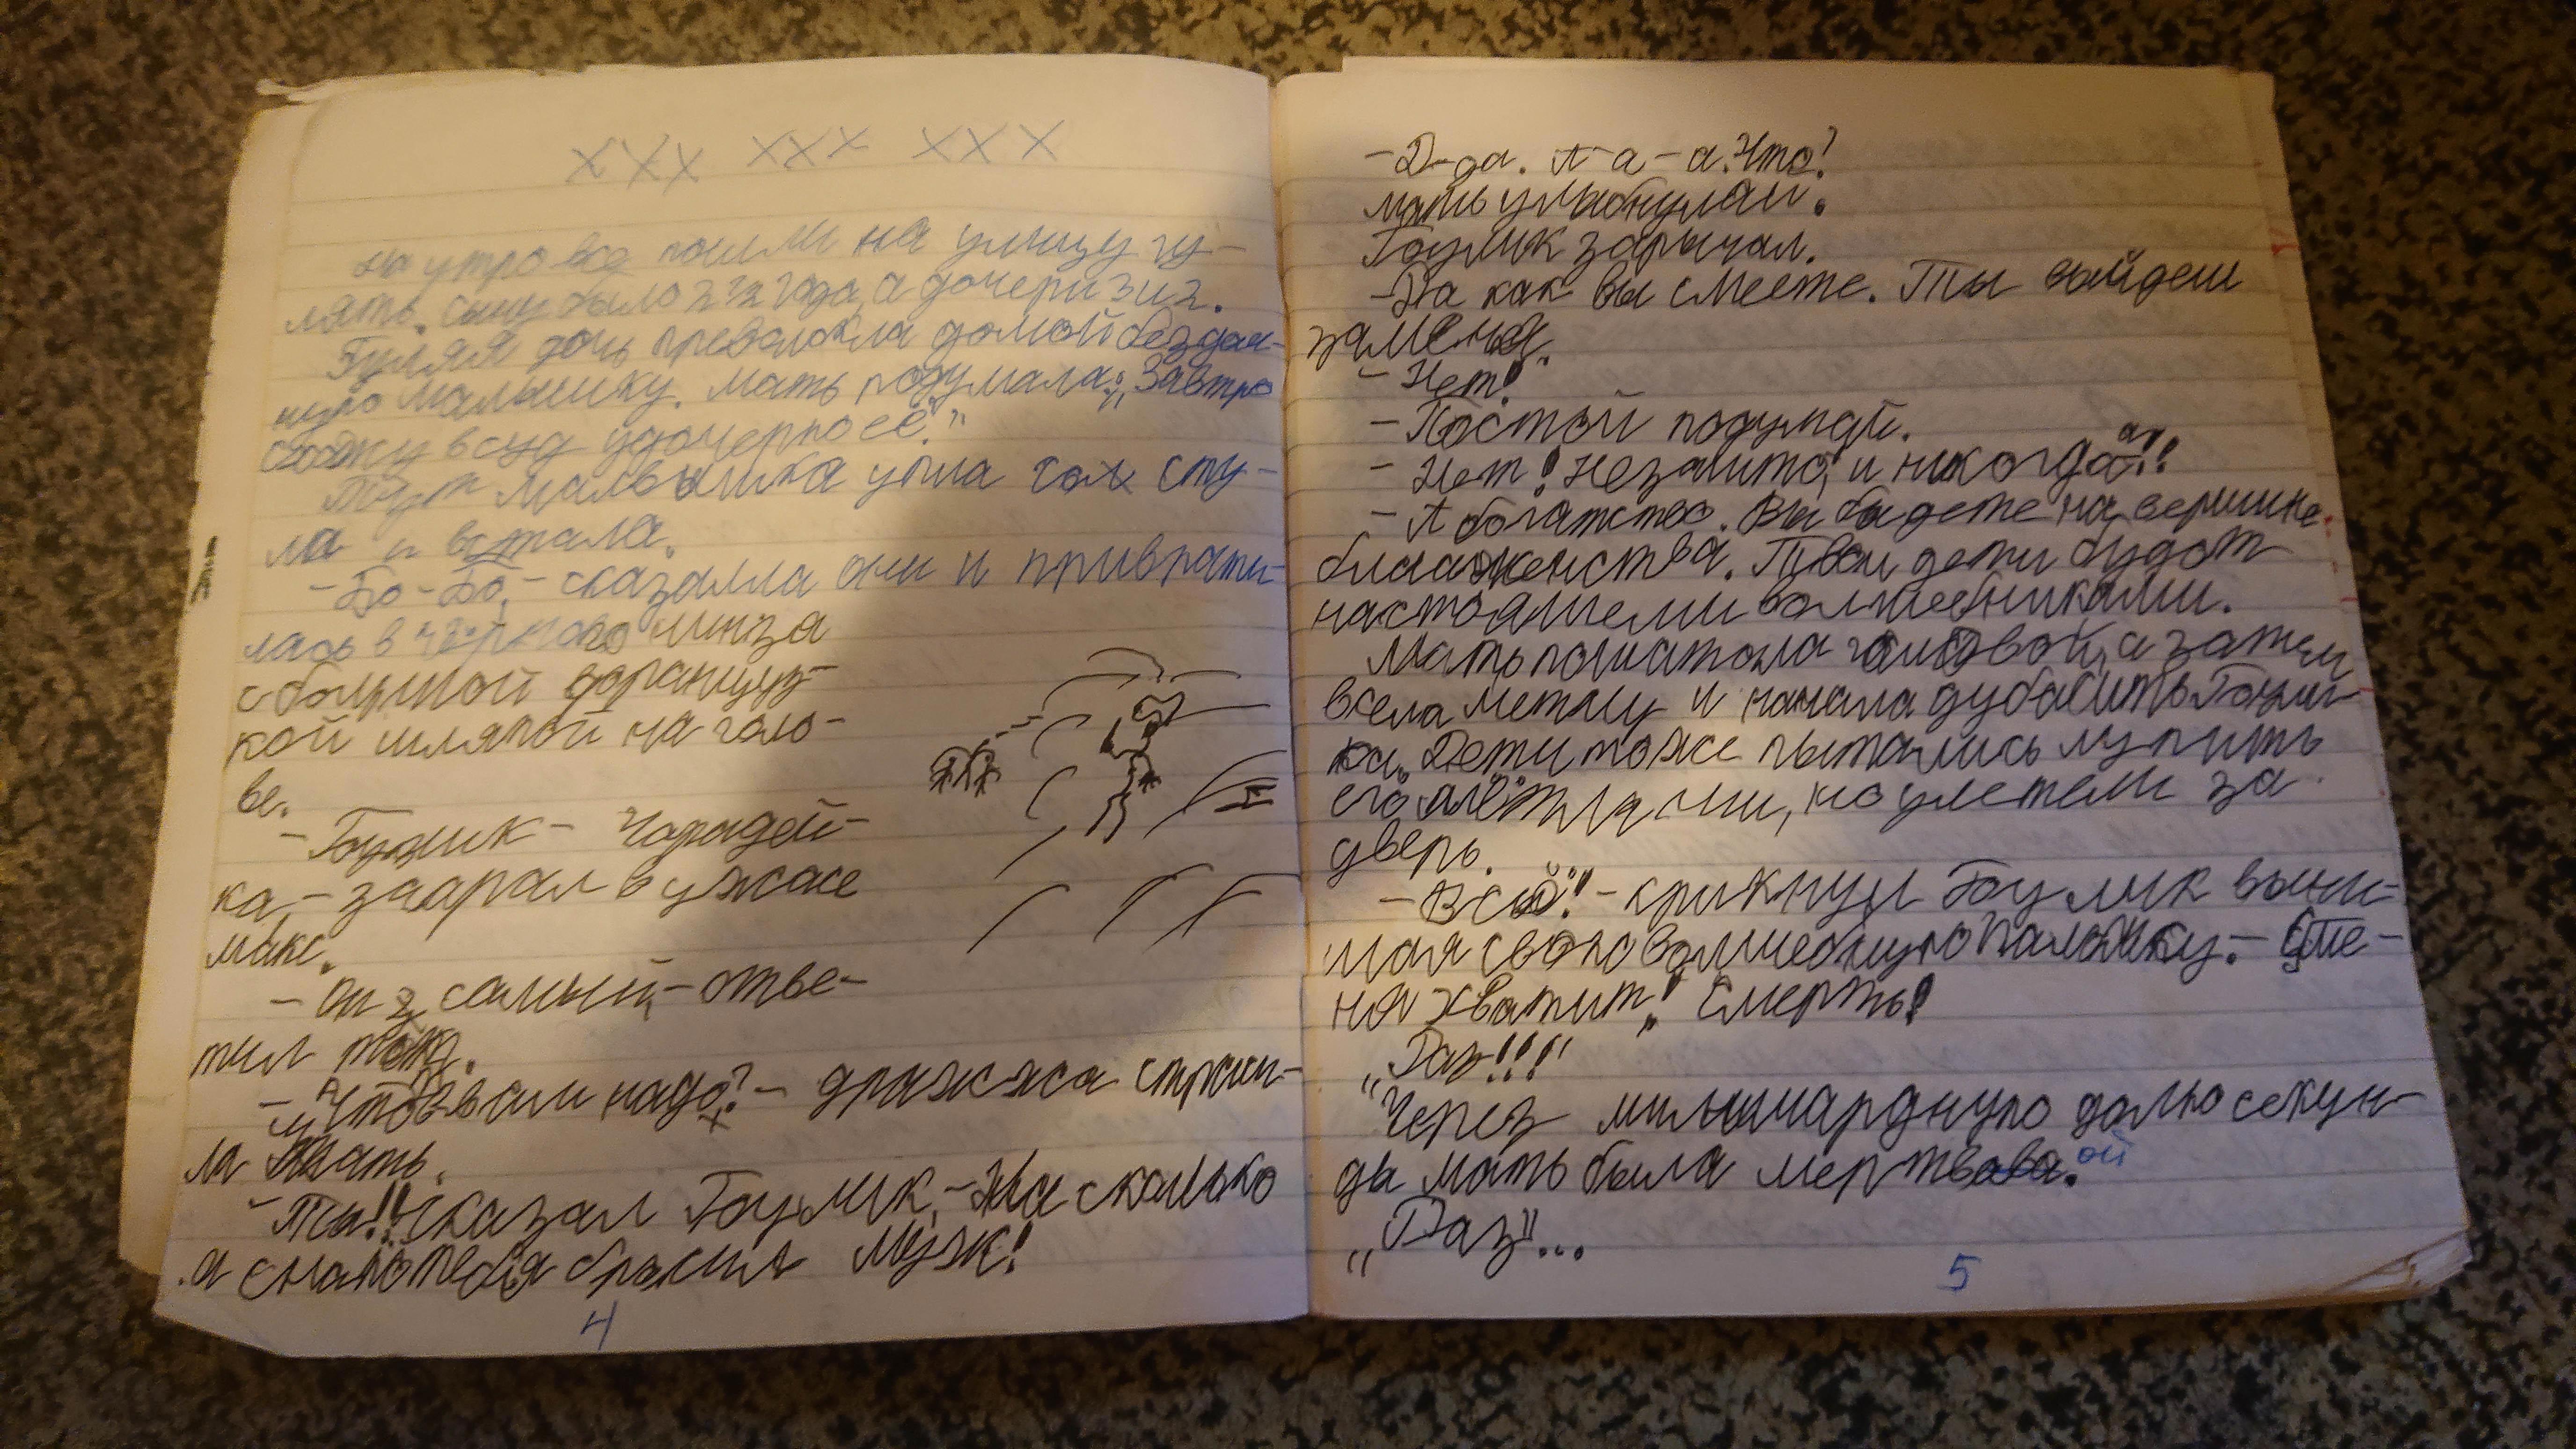 ххх ххх ххх
на утро все пошли на улицу гу-
лять. сыну было 2 1/2 года, а дочери 3 и 2.
Гуляя дочь превалокла домой бездом-
ную малышку. мать подумала: „Завтро
схожу в суд удочерю её."
Тут малвышка упла сох сту-
ла и встала.
- Бо-Бо, - сказалла они и приврати-
лась в чёрного минза
с большой форанцуз-
кой шляпой на голо-
ве.
- Гоумик - Чарадей-
ка, - заарал в ужасе
макс.
- Он самый, - отве-
тил тощ.
- Что вам надо? - дражжа спраси-
ла мать.
- Ты!! сказал Гоумик, - На сколько
я знаю тебя брасил муж!
4
- Д-да. А-а-а. Что!
мать улыбнулаи.
Гоумик зарычал.
- Да как вы смеете. Ты выйдеш
заменя.
- Нет!
- Постой подумай.
- Нет! Незашто, и никогдаа!!
- А богатство. Вы будете на вершине
блаженства. Твои дети будот
настоящеми волшебниками.
Мать пошатола головой, а затем
взела метлу и начела дубасить Гоуми-
ка. Дети тоже пытались лупить
его мётлами, но улетели за
дверь.
- Всё! - крикнул Гоумик выни-
мая свою волшебную палочку. - С те-
ня хватит! Смерть!
„Раз!!!"
Через мильшиардную долю секун-
ды мать была мертвой.
„Раз"...
5